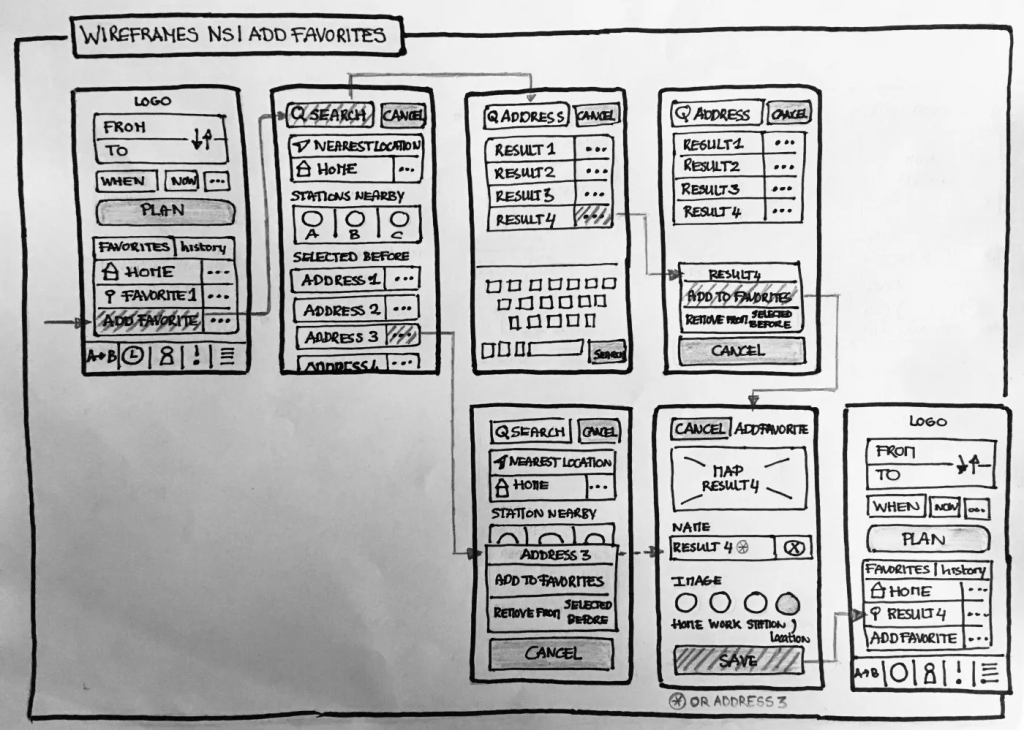 WIREFRAMES NS | ADD FAVORITES
LOGO
FROM
TO
WHEN NOW ...
PLAN
FAVORITES history
HOME ...
FAVORITE 1 ...
ADD FAVORITE ...
A→B !
SEARCH CANCEL
NEAREST LOCATION
HOME ...
STATIONS NEARBY
A B C
SELECTED BEFORE
ADDRESS 1 ...
ADDRESS 2 ...
ADDRESS 3 ...
ADDRESS 4 ...
ADDRESS CANCEL
RESULT 1 ...
RESULT 2 ...
RESULT 3 ...
RESULT 4 ...
SEARCH
ADDRESS CANCEL
RESULT 1 ...
RESULT 2 ...
RESULT 3 ...
RESULT 4 ...
RESULT 4
ADD TO FAVORITES
REMOVE FROM SELECTED BEFORE
CANCEL
SEARCH CANCEL
NEAREST LOCATION
HOME ...
STATION NEARBY
ADDRESS 3
ADD TO FAVORITES
REMOVE FROM SELECTED BEFORE
CANCEL
CANCEL ADD FAVORITE
MAP
RESULT 4
NAME
RESULT 4 * X
IMAGE
HOME WORK STATION location
SAVE
* OR ADDRESS 3
LOGO
FROM
TO
WHEN NOW ...
PLAN
FAVORITES history
HOME ...
RESULT 4 ...
ADD FAVORITE ...
A→B !